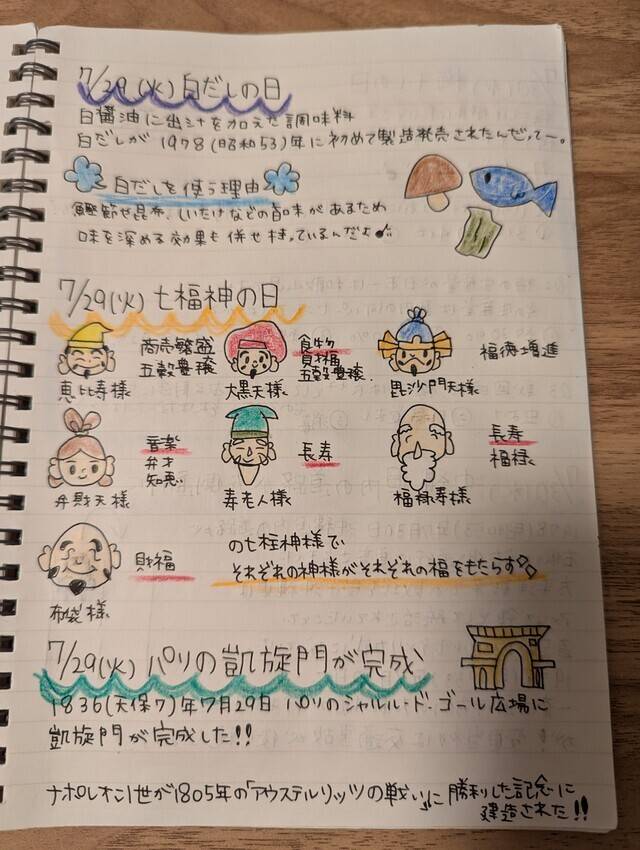 7/29(火)白だしの日
白醤油に出汁を加えた調味料
白だしが 1978(昭和53)年に初めて製造発売されたんだって〜。
白だしを使う理由
鰹節や昆布、しいたけなどの旨味があるため
味を深める効果も併せ持っているんだよ♪
7/29(火) 七福神の日
商売繁盛
五穀豊穣
恵比寿様
食物
財福
五穀豊穣
大黒天様
福徳増進
毘沙門天様
音楽
弁才
知恵
弁財天様
長寿
寿老人様
長寿
福禄
福禄寿様
財福
布袋様
の七柱神様で
それぞれの神様がそれぞれの福をもたらす
7/29(火) パリの凱旋門が完成
1836(天保7)年7月29日 パリのシャルル・ド・ゴール広場に
凱旋門が完成した!!
ナポレオン1世が1805年の「アウステルリッツの戦い」に勝利した記念に
建造された!!